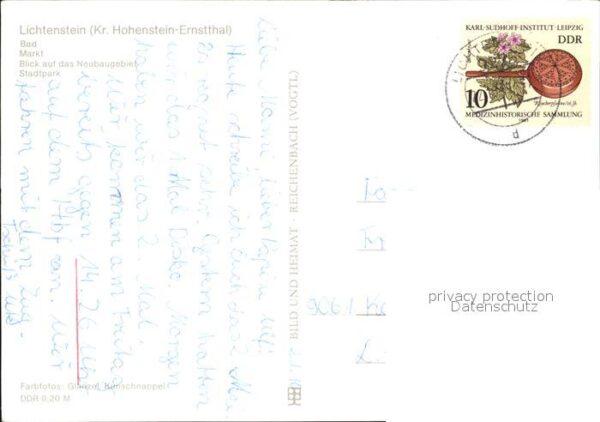 Lichtenstein (Kr. Hohenstein-Ernstthal)
Bad
Markt
Blick auf das Neubaugebiet
Stadtpark
Liebe Mami, lieber Papi
Heute schreibe ich Euch das 2. Mal.
Es regnet sehr. Gestern hatten
wir das 1. Mal Disko. Morgen
haben wir das 2. Mal.
Wir kommen am Freitag
bereits gegen 14.26 Uhr
auf dem Hbf an. Wir
fahren mit dem Zug.
Tschüß
Farbfotos: Glänzel, Kunschnappel
DDR 0,20 M
BILD UND HEIMAT · REICHENBACH (VOGTL)
KARL-SUDHOFF-INSTITUT · LEIPZIG
DDR
10
MEDIZINHISTORISCHE SAMMLUNG
privacy protection
Datenschutz